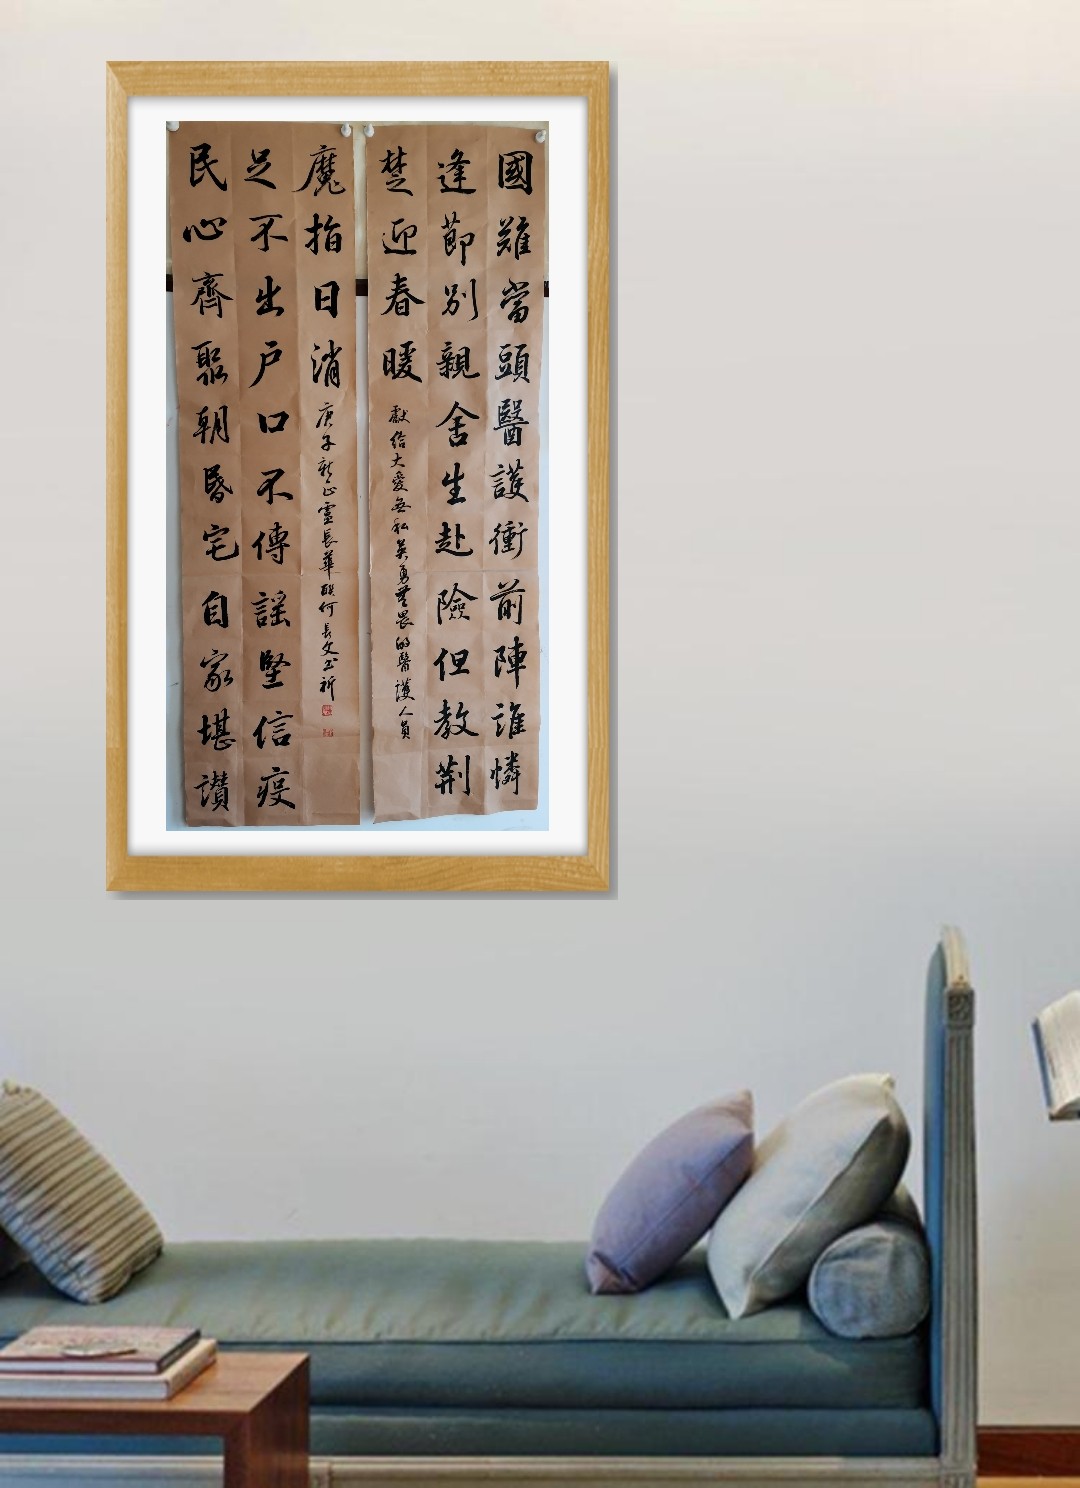 國難當頭醫護衝前陣誰憐
逢節別親舍生赴險但教荆
楚迎春暖
獻給大愛無私英勇無畏的醫護人員
民心齊聚朝昏宅自家堪讃
足不出户口不傳謡堅信疫
魔指日消
庚子新正靈長華联何長文书祈